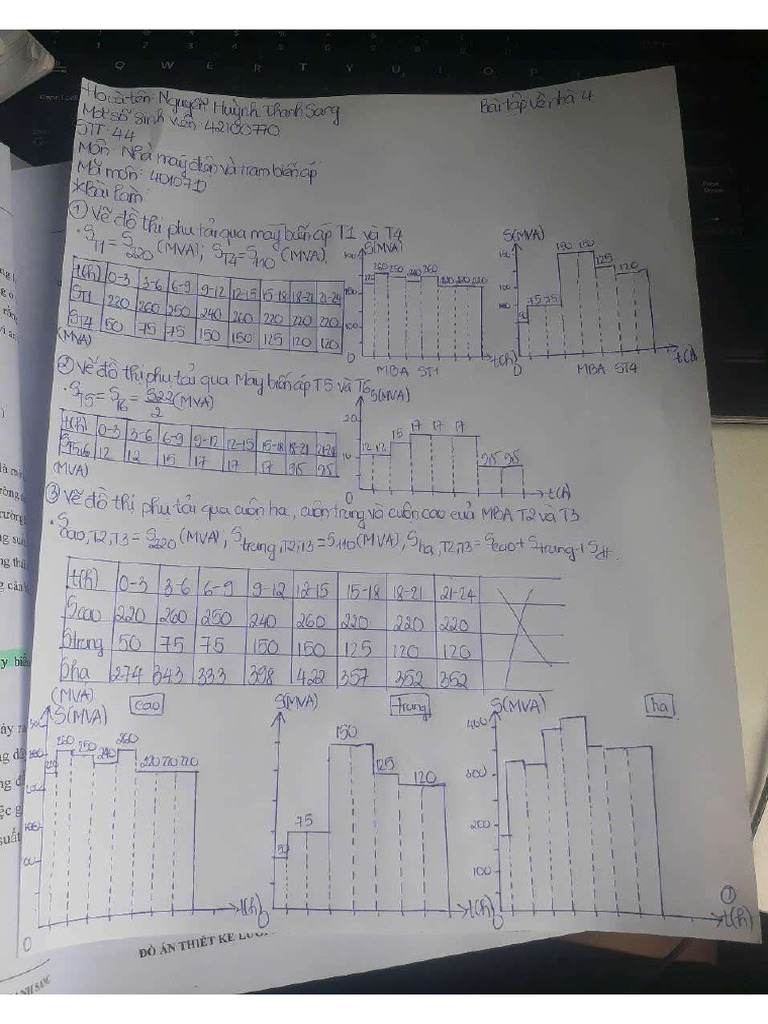 Q W E R T Y U I O P
Họ và tên: Nguyễn Huỳnh Thanh Sang
Bài tập về nhà 4
Mã số sinh viên: 42100770
STT: 44
Môn: Nhà máy điện và trạm biến áp
Mã môn: 401071D
*Bài làm:
① Vẽ đồ thị phụ tải qua máy biến áp T1 và T4
• S_T1 = S_220 (MVA); S_T4 = S_110 (MVA).
t(h) 0-3 3-6 6-9 9-12 12-15 15-18 18-21 21-24
ST1 220 260 250 240 260 220 220 220
ST4 50 75 75 150 150 125 120 120
(MVA)
S(MVA)
220 260 250 240 260 220 220 220
0
t(h)
MBA ST1
S(MVA)
50 75 75 150 150 125 120
0
t(h)
MBA ST4
② Vẽ đồ thị phụ tải qua Máy biến áp T5 và T6
• S_T5 = S_T6 = S_22/2 (MVA)
t(h) 0-3 3-6 6-9 9-12 12-15 15-18 18-21 21-24
12 12 15 17 17 17 9,5 9,5
(MVA)
S(MVA)
20
10
0
12 12 15 17 17 17 9,5 9,5
t(h)
③ Vẽ đồ thị phụ tải qua cuộn hạ, cuộn trung và cuộn cao của MBA T2 và T3
• S_cao,T2,T3 = S_220 (MVA), S_trung,T2,T3 = S_110 (MVA), S_hạ,T2,T3 = S_cao + S_trung + S_dt.
t(h) 0-3 3-6 6-9 9-12 12-15 15-18 18-21 21-24
Scao 220 260 250 240 260 220 220 220
Strung 50 75 75 150 150 125 120 120
Shạ 274 343 333 398 422 357 352 352
(MVA)
S(MVA)
cao
220 260 250 240 260 220 220 220
0
t(h)
S(MVA)
trung
50 75 150 125 120
0
t(h)
S(MVA)
hạ
400
300
200
100
0
t(h)
①
ĐỒ ÁN THIẾT KẾ LƯỚI
ANH SANG